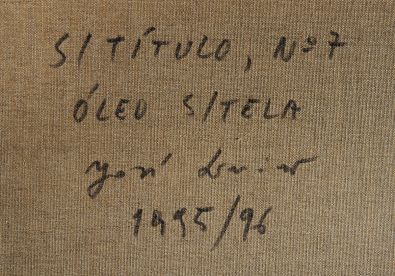 S/TÍTULO, Nº7
ÓLEO S/TELA
José
1995/96